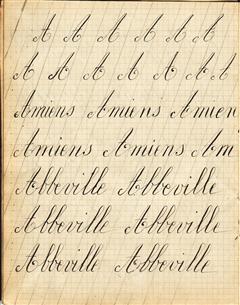 A A A A A A
A A A A A A A
Amiens Amiens Amien
Amiens Amiens Am
Abbeville Abbeville
Abbeville Abbeville
Abbeville Abbeville